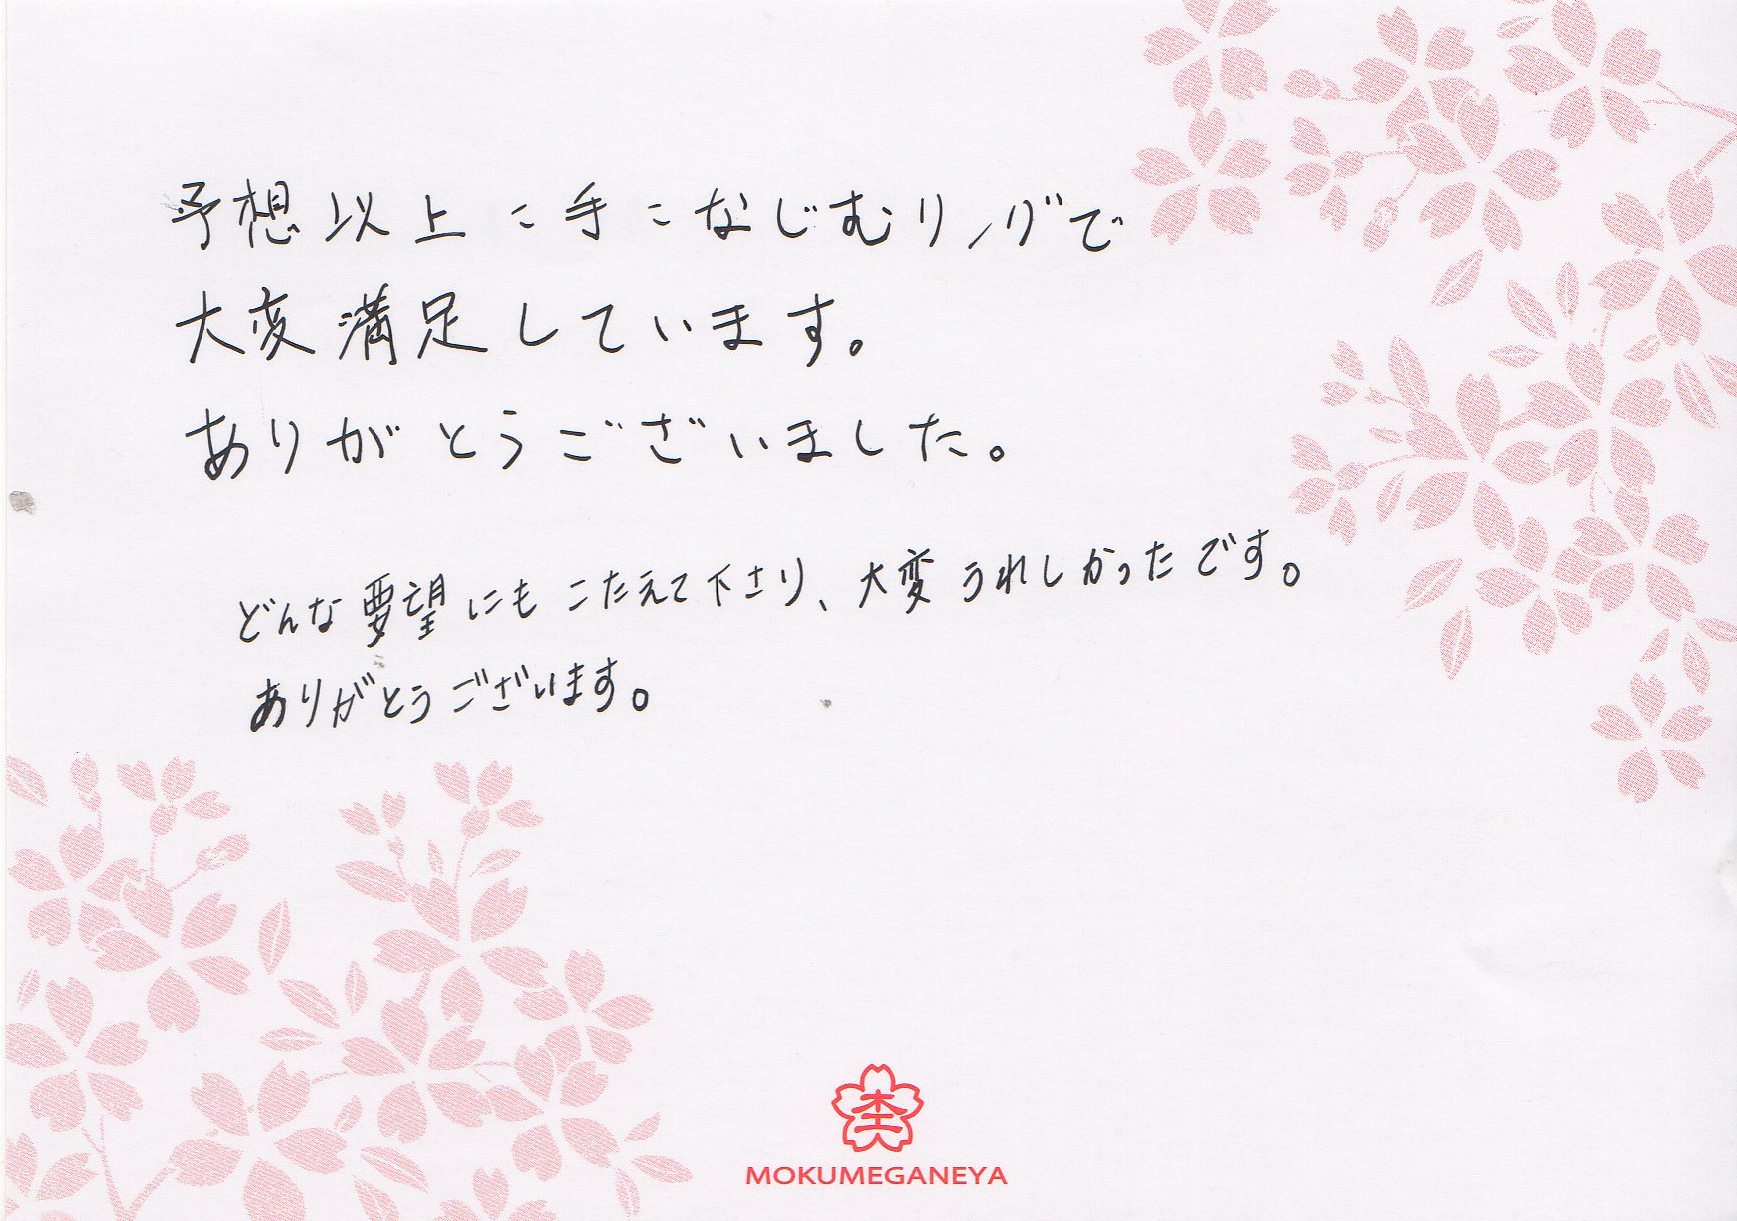 予想以上に手になじむリングで
大変満足しています。
ありがとうございました。
どんな要望にもこたえて下さり、大変うれしかったです。
ありがとうございます。
杢
MOKUMEGANEYA